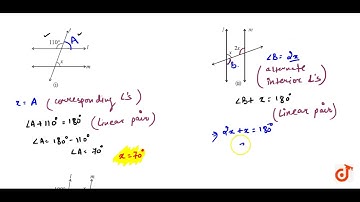 110° A l
x m
(i)
x = A (corresponding ∠'s)
∠A + 110° = 180° (linear pair)
∠A = 180° - 110°
∠A = 70° x = 70°
l m
x 2x
b
(ii)
∠B = 2x
(alternate interior ∠'s)
∠B + x = 180°
(linear pair)
⇒ 2x + x = 180°
100°